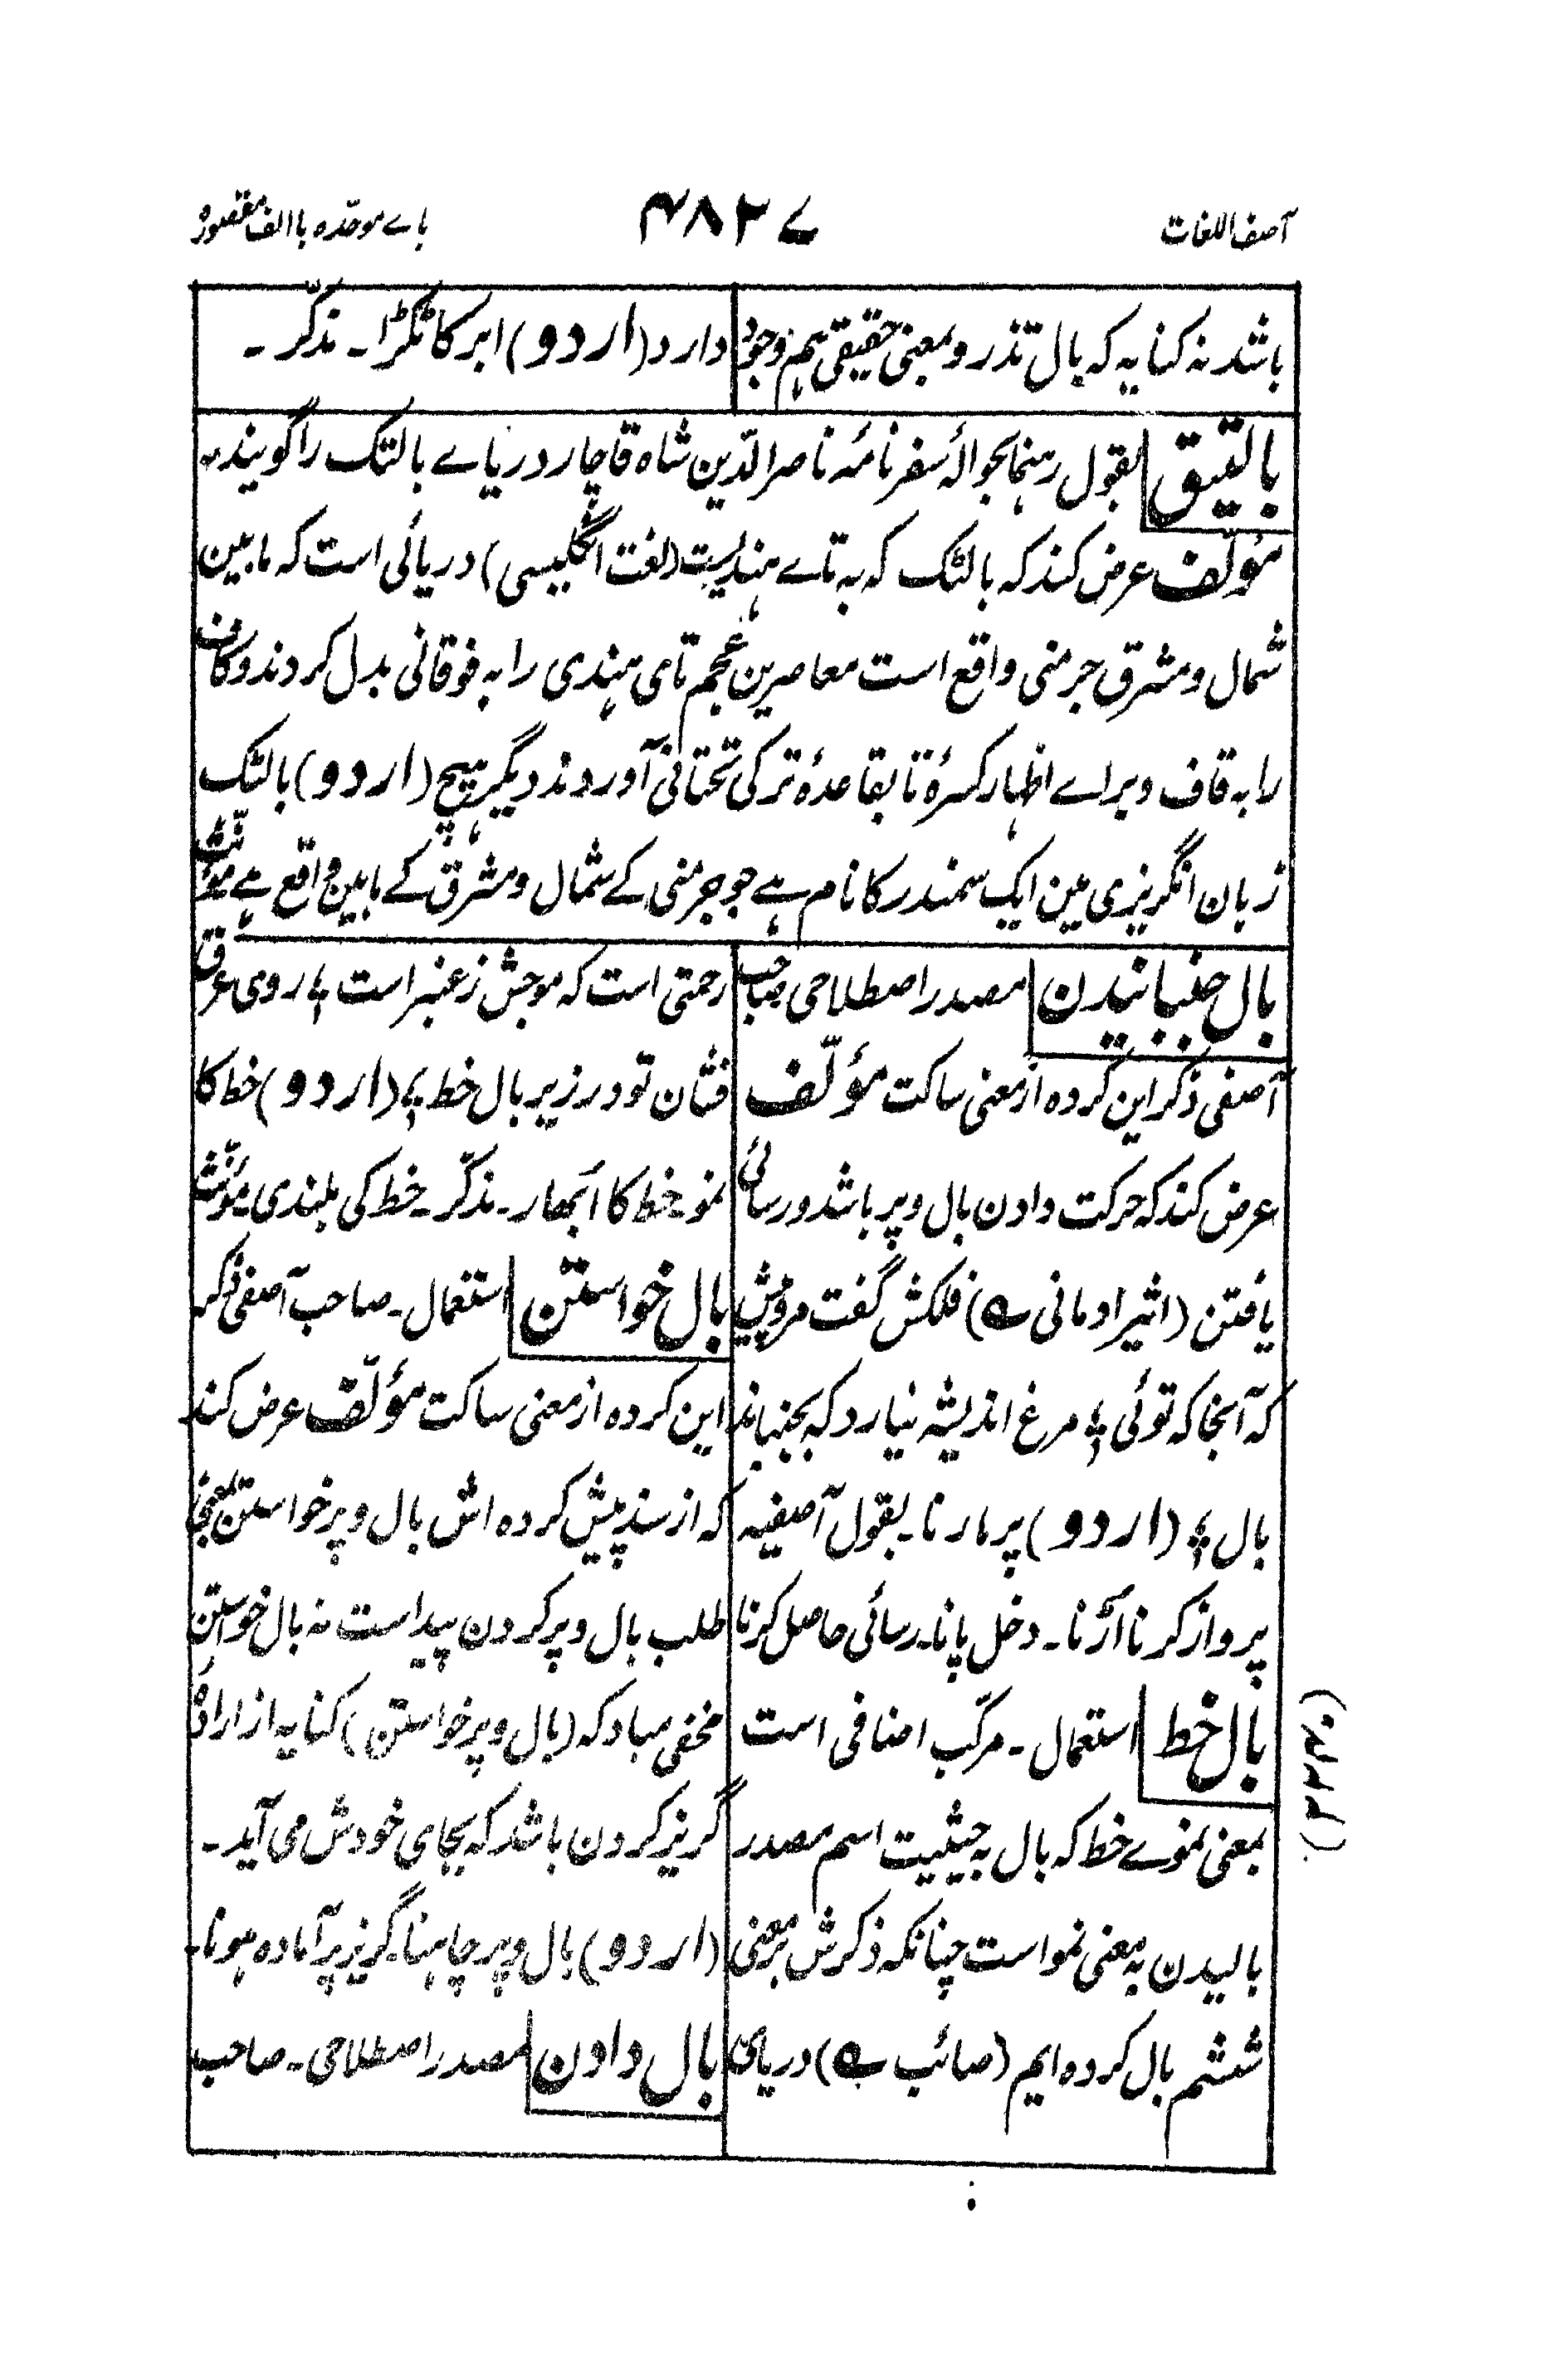 آصف اللغات
۴۸۲۷
باے موحّدہ باالف مقصورہ
باشد نہ کنایہ کہ بال تذرو بمعنی حقیقی ہم وجود
دارد (اردو) ابر کا ٹکڑا ۔ مذکّر ۔
بالتیق بقول رہنما بحوالۂ سفرنامۂ ناصر الدّین شاہ قاچار دریاے بالتک را گویند ۔
مؤلّف عرض کند کہ بالٹک کہ بہ تاے ہندیست (لغت انگلیسی) دریائی است کہ مابین
شمال و مشرق جرمنی واقع است معاصرین عجم تای ہندی را بہ فوقانی بدل کردند و کاف
را بہ قاف و براے اظہار کسرۂ تا بقاعدۂ ترکی تحتانی آوردند دیگر ہیچ (اردو) بالٹک
زبان انگریزی مین ایک سمندر کا نام ہے جو جرمنی کے شمال و مشرق کے مابین واقع ہے مؤنّث
بال جنبانیدن مصدر اصطلاحی صاحب
آصفی ذکر این کردہ از معنی ساکت مؤلّف
عرض کند کہ حرکت دادن بال و پر باشد و رسائی
یافتن (اثیر اومانی ؎) فلکش گفت مروپیش
کہ آنجا کہ توئی ؛ مرغ اندیشہ نیارد کہ بجنباند
بال ؛ (اردو) پر مارنا ۔ بقول آصفیہ
پرواز کرنا اُڑنا ۔ دخل پانا ۔ رسائی حاصل کرنا
بال خط استعمال ۔ مرکّب اضافی است
بمعنی نموے خط کہ بال بہ حیثیت اسم مصدر
بالیدن بہ معنی نمو است چنانکہ ذکرش بر معنی
ششم بال کردہ ایم (صائب ؎) دریای
رحمتی است کہ موجش ز عنبر است ؛ روی عرق
فشان تو در زیر بال خط ؛ (اردو) خط کا
نمو ۔ خط کا اُبھار ۔ مذکّر ۔ خط کی بلندی ۔ مؤنّث
بال خواستن استعمال ۔ صاحب آصفی ذکر
این کردہ از معنی ساکت مؤلّف عرض کند
کہ از سند پیش کردہ اش بال و پر خواستن بمعنی
طلب بال و پر کردن پیداست نہ بال خواستن
مخفی مباد کہ (بال و پر خواستن) کنایہ از ارادۂ
گریز کردن باشد کہ بجای خودش می آید ۔
(اردو) بال و پر چاہنا ۔ گریز پر آمادہ ہونا ۔
بال دادن مصدر اصطلاحی ۔ صاحب